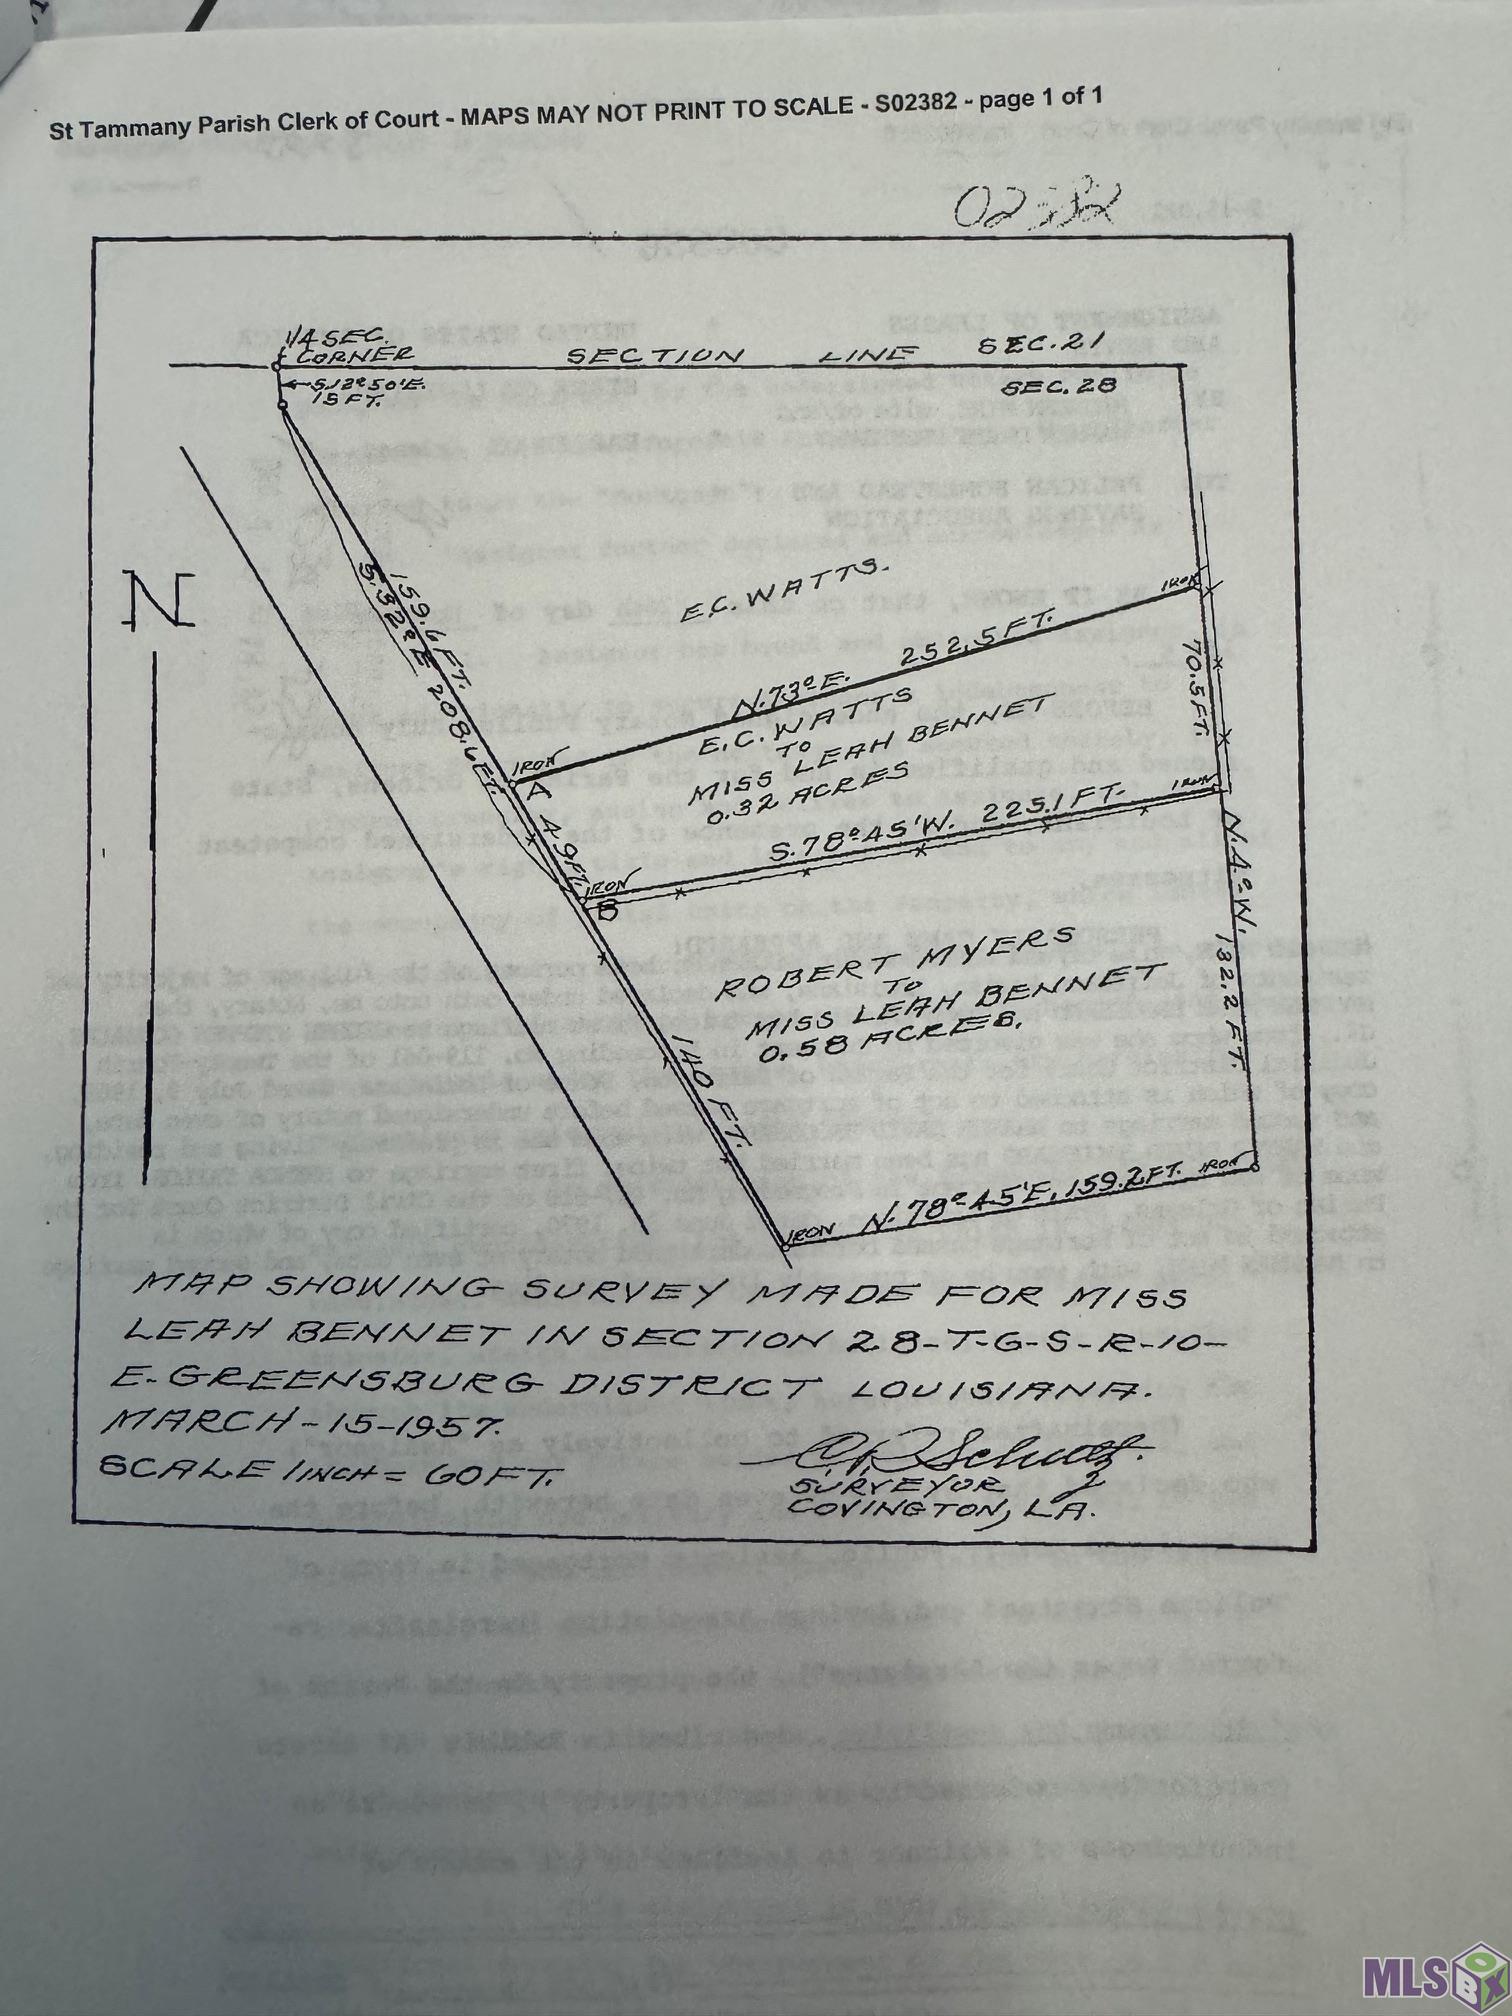 St Tammany Parish Clerk of Court - MAPS MAY NOT PRINT TO SCALE - S02382 - page 1 of 1
02382
1/4 SEC.
CORNER
SECTION LINE SEC. 21
S.12º50'E.
15 FT.
SEC. 28
N
E.C. WATTS.
159.6 FT.
S.32º E 208.6 FT.
IRON
N.73º E. 252.5 FT.
70.5 FT.
E.C. WATTS
TO
MISS LEAH BENNET
0.32 ACRES
IRON
A
49 FT.
S.78º45'W. 225.1 FT.
IRON
IRON
B
N.4º W. 132.2 FT.
ROBERT MYERS
TO
MISS LEAH BENNET
0.58 ACRES.
140 FT.
IRON N.78º45'E, 159.2 FT. IRON
MAP SHOWING SURVEY MADE FOR MISS
LEAH BENNET IN SECTION 28-T-6-S-R-10-
E-GREENSBURG DISTRICT LOUISIANA.
MARCH-15-1957.
SCALE 1 INCH = 60 FT.
C.R. Schultz
SURVEYOR
COVINGTON, LA.
MLSBOX